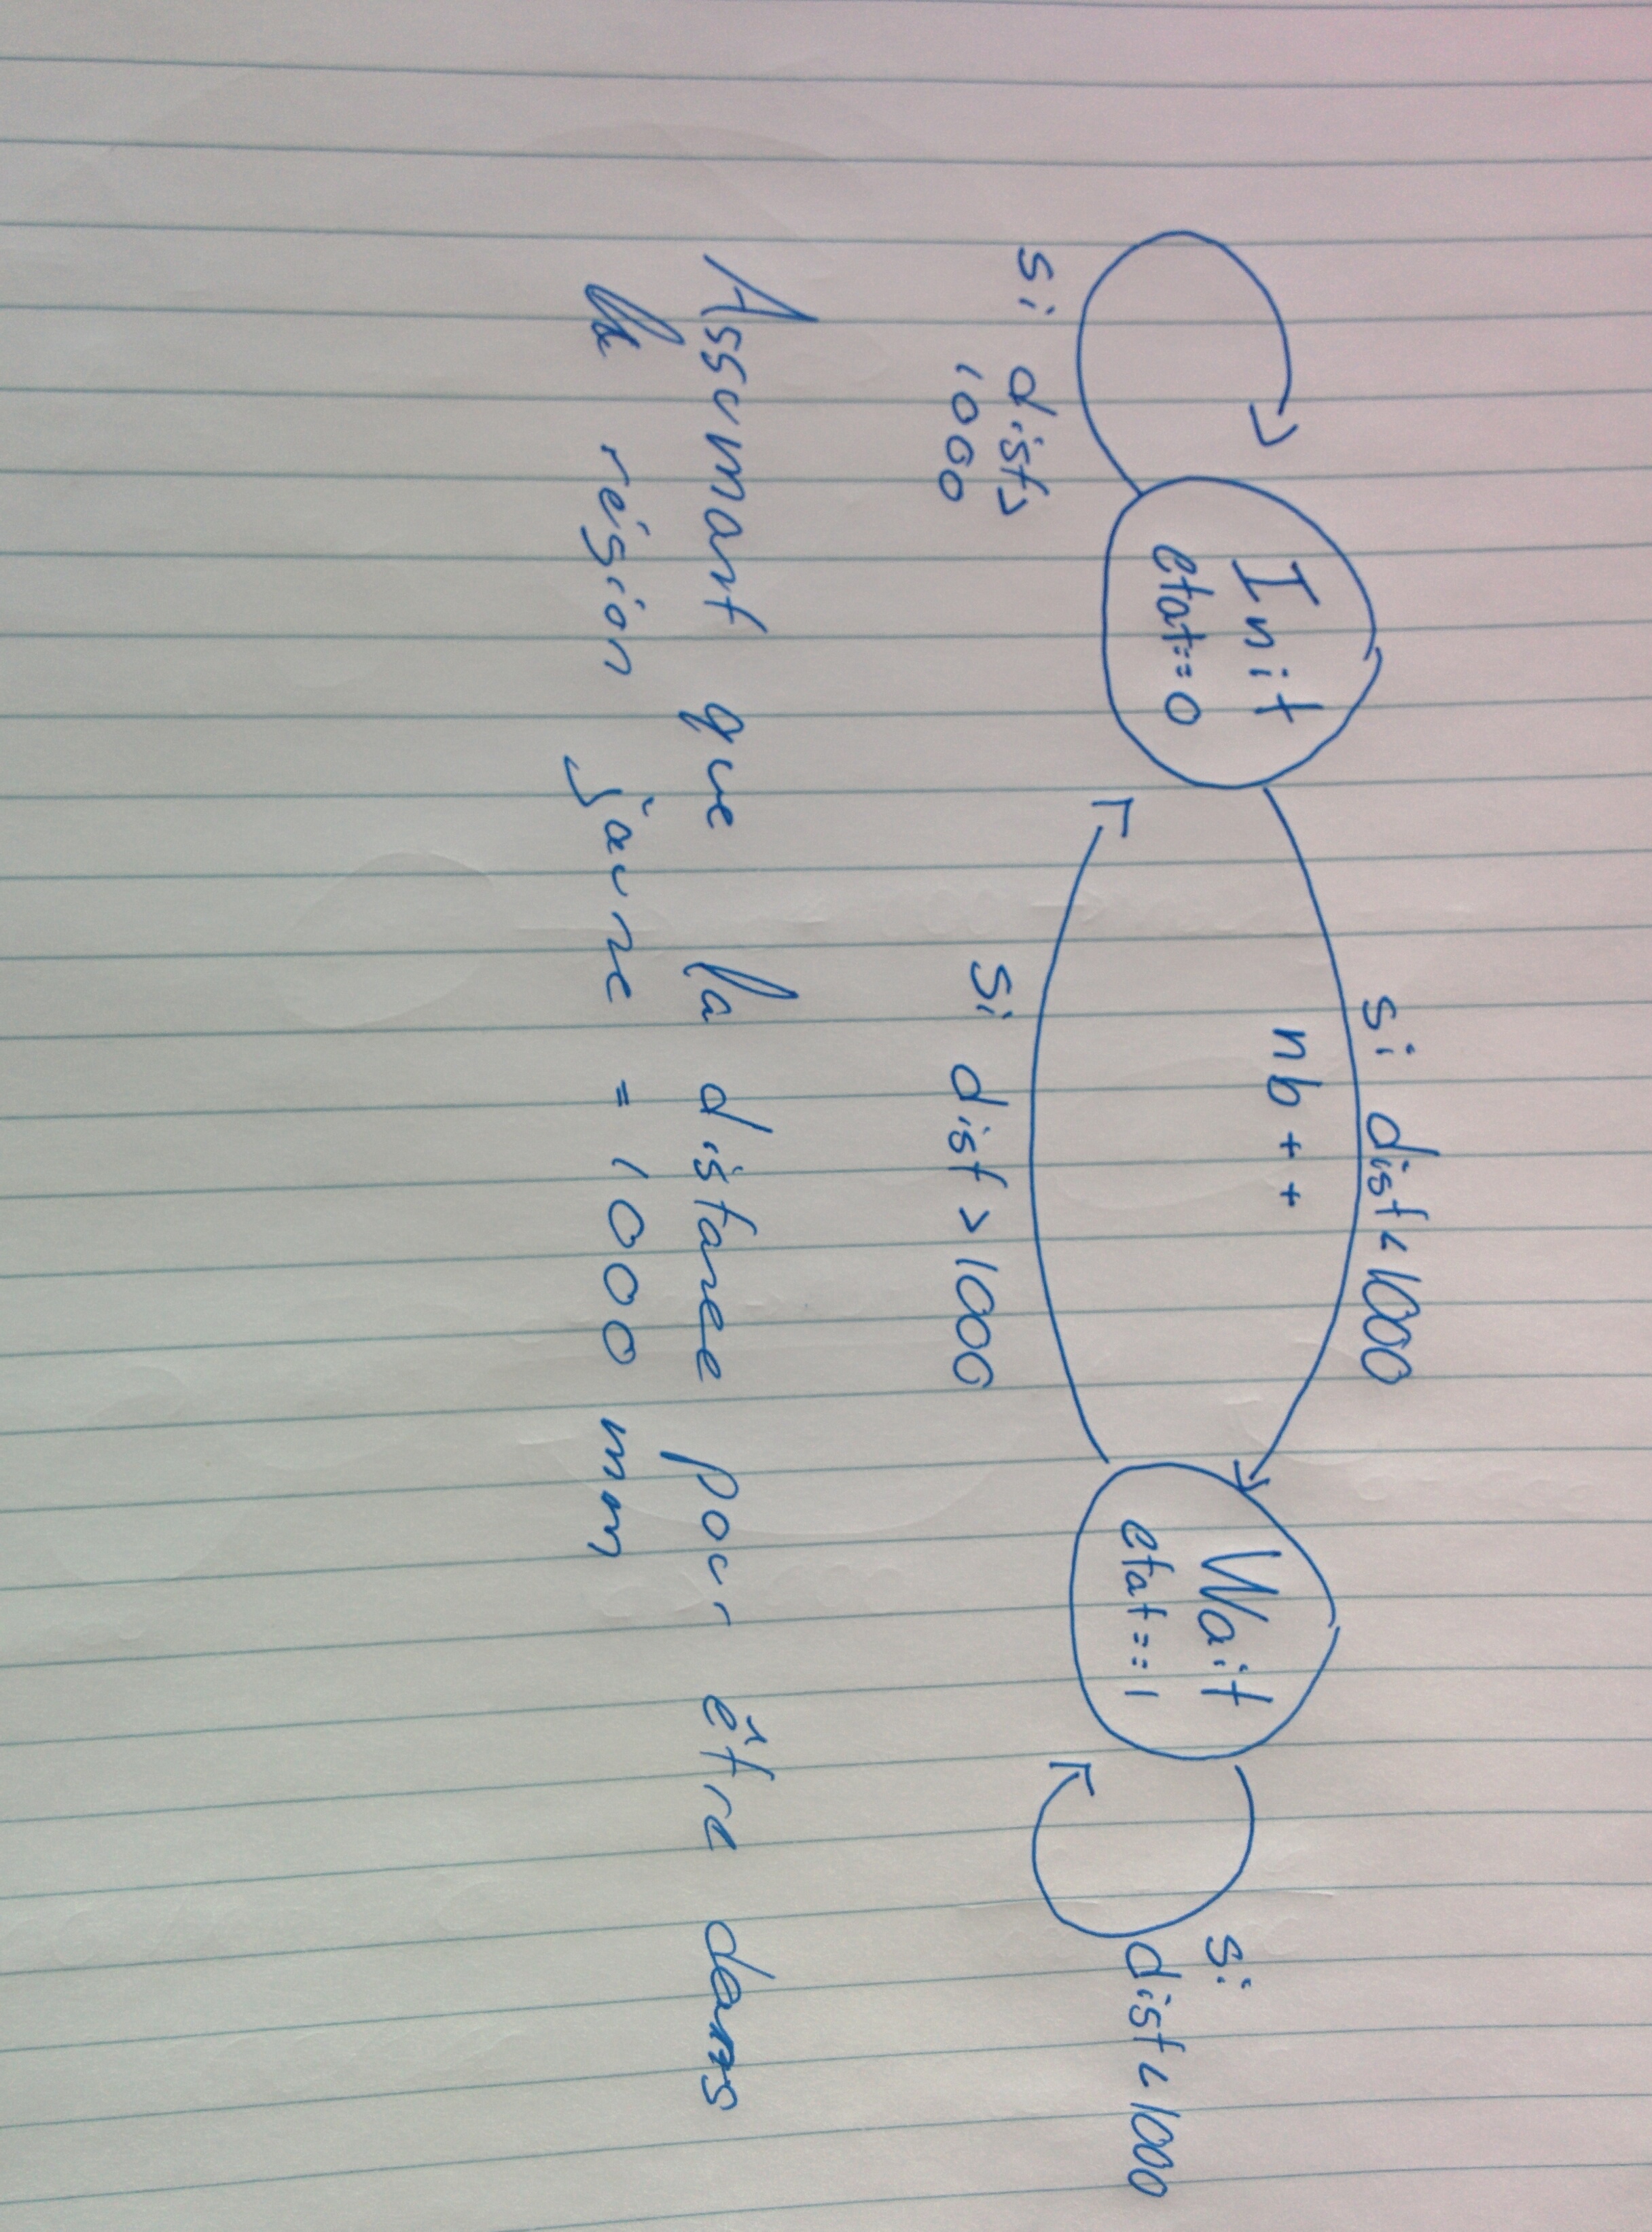 si dist<1000
nb++
Init
etat==0
Wait
etat==1
si
dist<1000
si dist>
1000
si dist>1000
Assumant que la distance pour être dans
la région jaune = 1000 mm